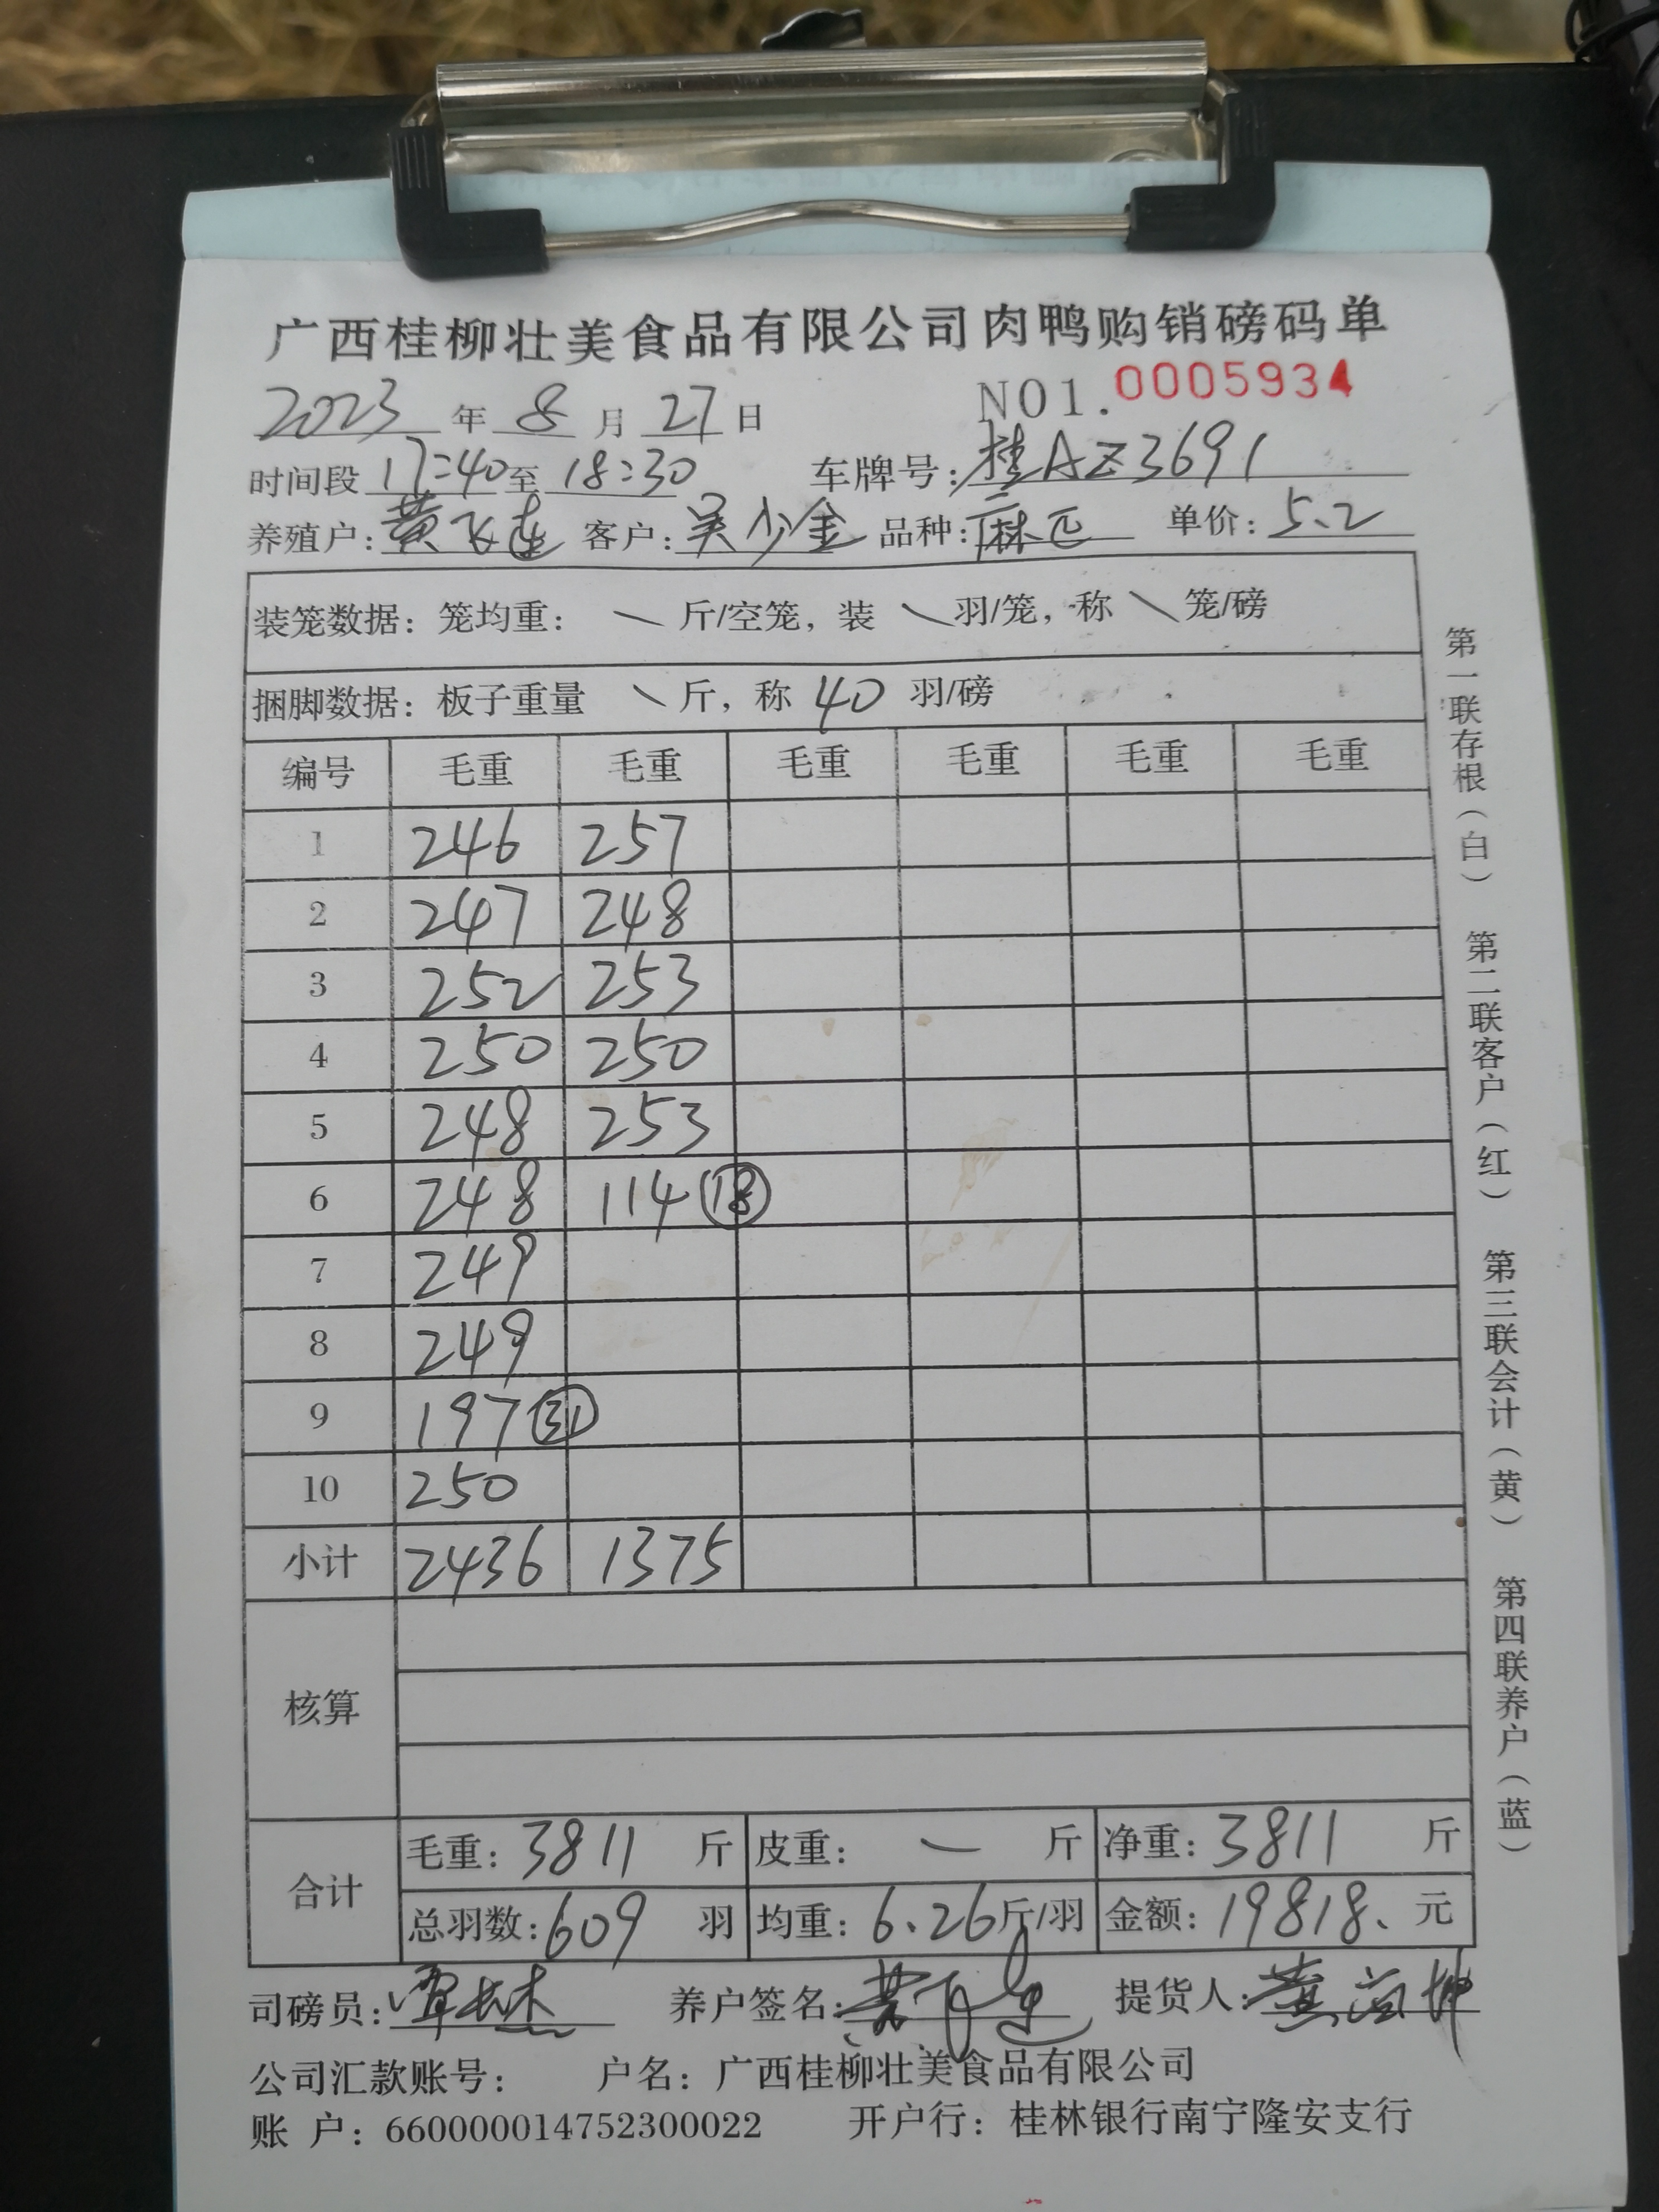 广西桂柳壮美食品有限公司肉鸭购销磅码单
2023 年 8 月 27 日 NO1.0005934
时间段 17:40 至 18:30 车牌号: 桂AZ3691
养殖户: 黄飞连 客户: 吴少金 品种: 麻 单价: 5.2
装笼数据: 笼均重: \ 斤/空笼, 装 \ 羽/笼, 称 \ 笼/磅
捆脚数据: 板子重量 \ 斤, 称 40 羽/磅
编号 毛重 毛重 毛重 毛重 毛重 毛重
1 246 257
2 247 248
3 252 253
4 250 250
5 248 253
6 248 114 ⑱
7 249
8 249
9 197 ㉛
10 250
小计 2436 1375
核算
合计
毛重: 3811 斤 皮重: — 斤 净重: 3811 斤
总羽数: 609 羽 均重: 6.26 斤/羽 金额: 19818. 元
司磅员: 养户签名: 提货人: 黄
公司汇款账号: 户名: 广西桂柳壮美食品有限公司
账 户: 660000014752300022 开户行: 桂林银行南宁隆安支行
第一联存根(白) 第二联客户(红) 第三联会计(黄) 第四联养户(蓝)